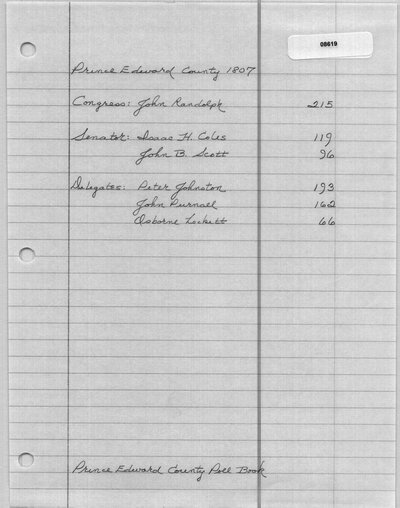 08619
Prince Edward County 1807
Congress: John Randolph 215
Senator: Isaac H. Coles 119
John B. Scott 96
Delegates: Peter Johnston 193
John Purnall 162
Osborne Lockett 66
Prince Edward County Poll Book